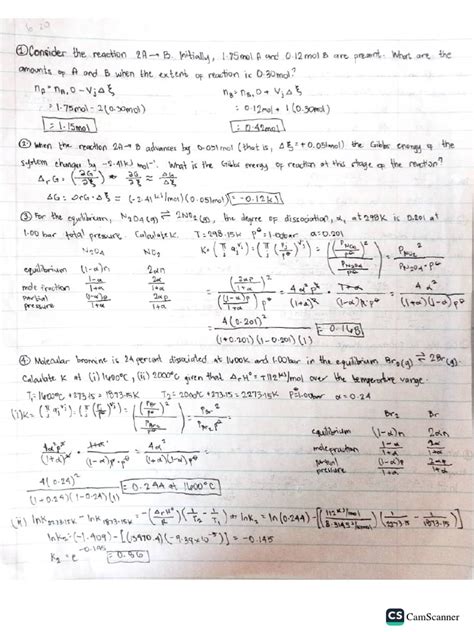 ① Consider the reaction 2A → B. Initially, 1.75 mol A and 0.12 mol B are present. What are the
amounts of A and B when the extent of reaction is 0.30 mol?
nA = nA,0 - Vj Δξ nB = nB,0 + Vj Δξ
= 1.75mol - 2(0.30mol) = 0.12mol + 1(0.30mol)
= 1.15mol = 0.42mol
② When the reaction 2A → B advances by 0.051 mol (that is, Δξ = +0.051 mol) the Gibbs energy of the
system changes by -2.41 kJ mol⁻¹. What is the Gibbs energy of reaction at this stage of the reaction?
ΔrG = (∂G/∂ξ) ≈ ΔG/Δξ
ΔG = ΔrG · Δξ = (-2.41 kJ/mol)(0.051mol) = -0.12kJ
③ For the equilibrium, N2O4(g) ⇌ 2NO2(g), the degree of dissociation, α, at 298K is 0.201 at
1.00 bar total pressure. Calculate K. T = 298.15K P° = 1.00bar α = 0.201
N2O4 NO2
equilibrium (1-α)n 2αn
mole fraction 1-α/1+α 2α/1+α
partial pressure (1-α)p/1+α 2αp/1+α
4(0.201)²
(1+0.201)(1-0.201)(1) = 0.168
④ Molecular bromine is 24 percent dissociated at 1600K and 1.00bar in the equilibrium Br2(g) ⇌ 2Br(g).
Calculate K at (i) 1600°C, (ii) 2000°C given that ΔrH° = +112 kJ/mol over the temperature range.
T1 = 1600°C + 273.15 = 1873.15K T2 = 2000°C + 273.15 = 2273.15K P° = 1.00bar α = 0.24
Br2 Br
equilibrium (1-α)n 2αn
mole fraction 1-α/1+α 2α/1+α
partial pressure (1-α)p/1+α 2αp/1+α
4(0.24)²
(1-0.24)(1-0.24)(1) = 0.244 at 1600°C
(ii) lnK2273.15K - lnK1873.15K = -(ΔrH°/R)(1/T2 - 1/T1)
lnK2 = (-1.409) - [(13470.4)(-9.39x10⁻⁵)] = -0.145
K2 = e^-0.145 = 0.86
CS CamScanner